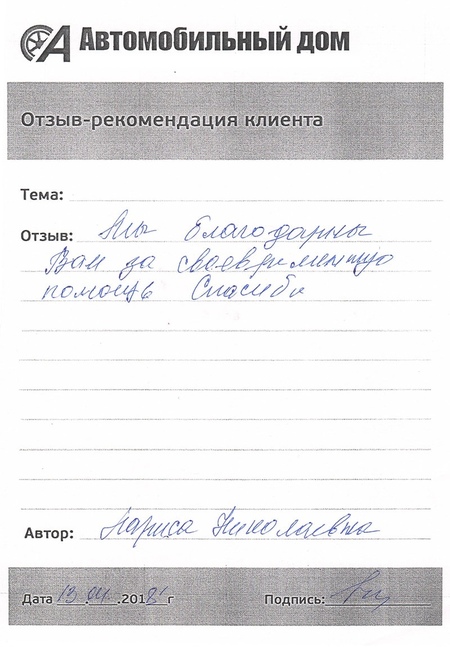 Автомобильный дом
Отзыв-рекомендация клиента
Тема:
Отзыв: Мы благодарны
Вам за своевременную
помощь Спасибо
Автор: Лариса Николаевна
Дата 13.04.2018г Подпись: